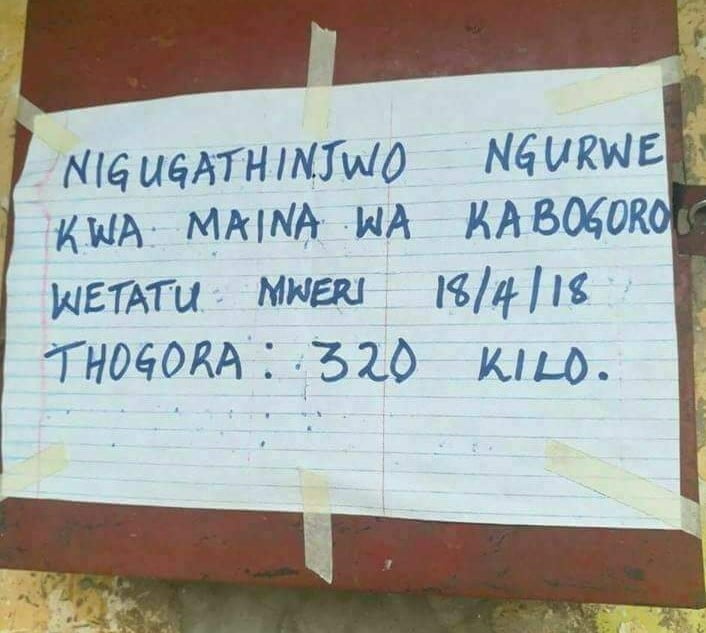 NIGUGATHINJWO NGURWE
KWA MAINA WA KABOGORO
WETATU MWERI 18/4/18
THOGORA: 320 KILO.